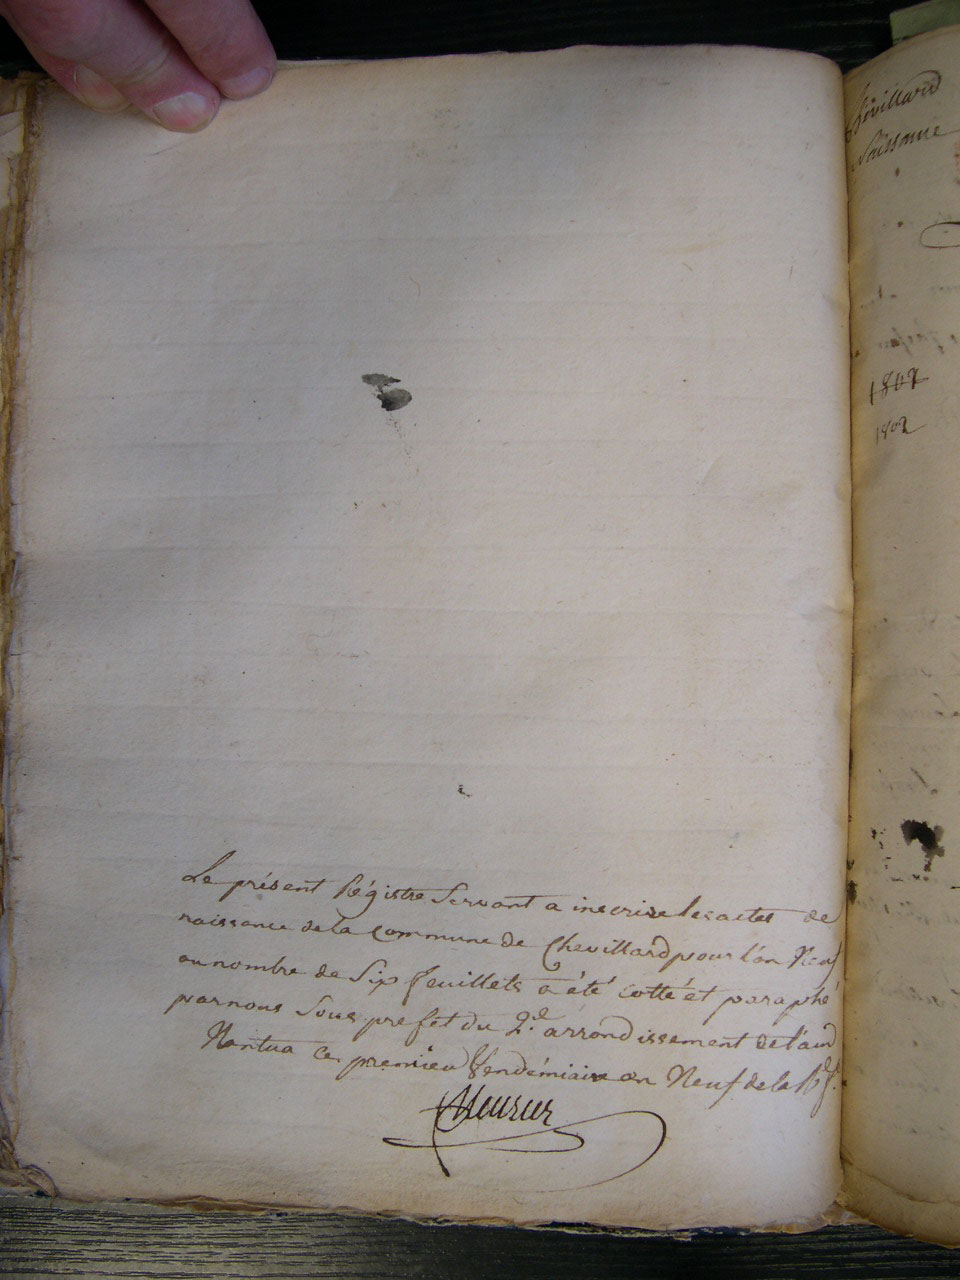 Le présent Régistre Servant a inscrire les actes de
naissance de la Commune de Chevillard pour l'an Neuf
au nombre de Six feuillets a été cotté et paraphé
par nous Sous prefet du 2.e arrondissement de l'ain
Nantua ce premier Vendémiaire an Neuf de la R. f.
Chevillard
Naissance
1802
1802